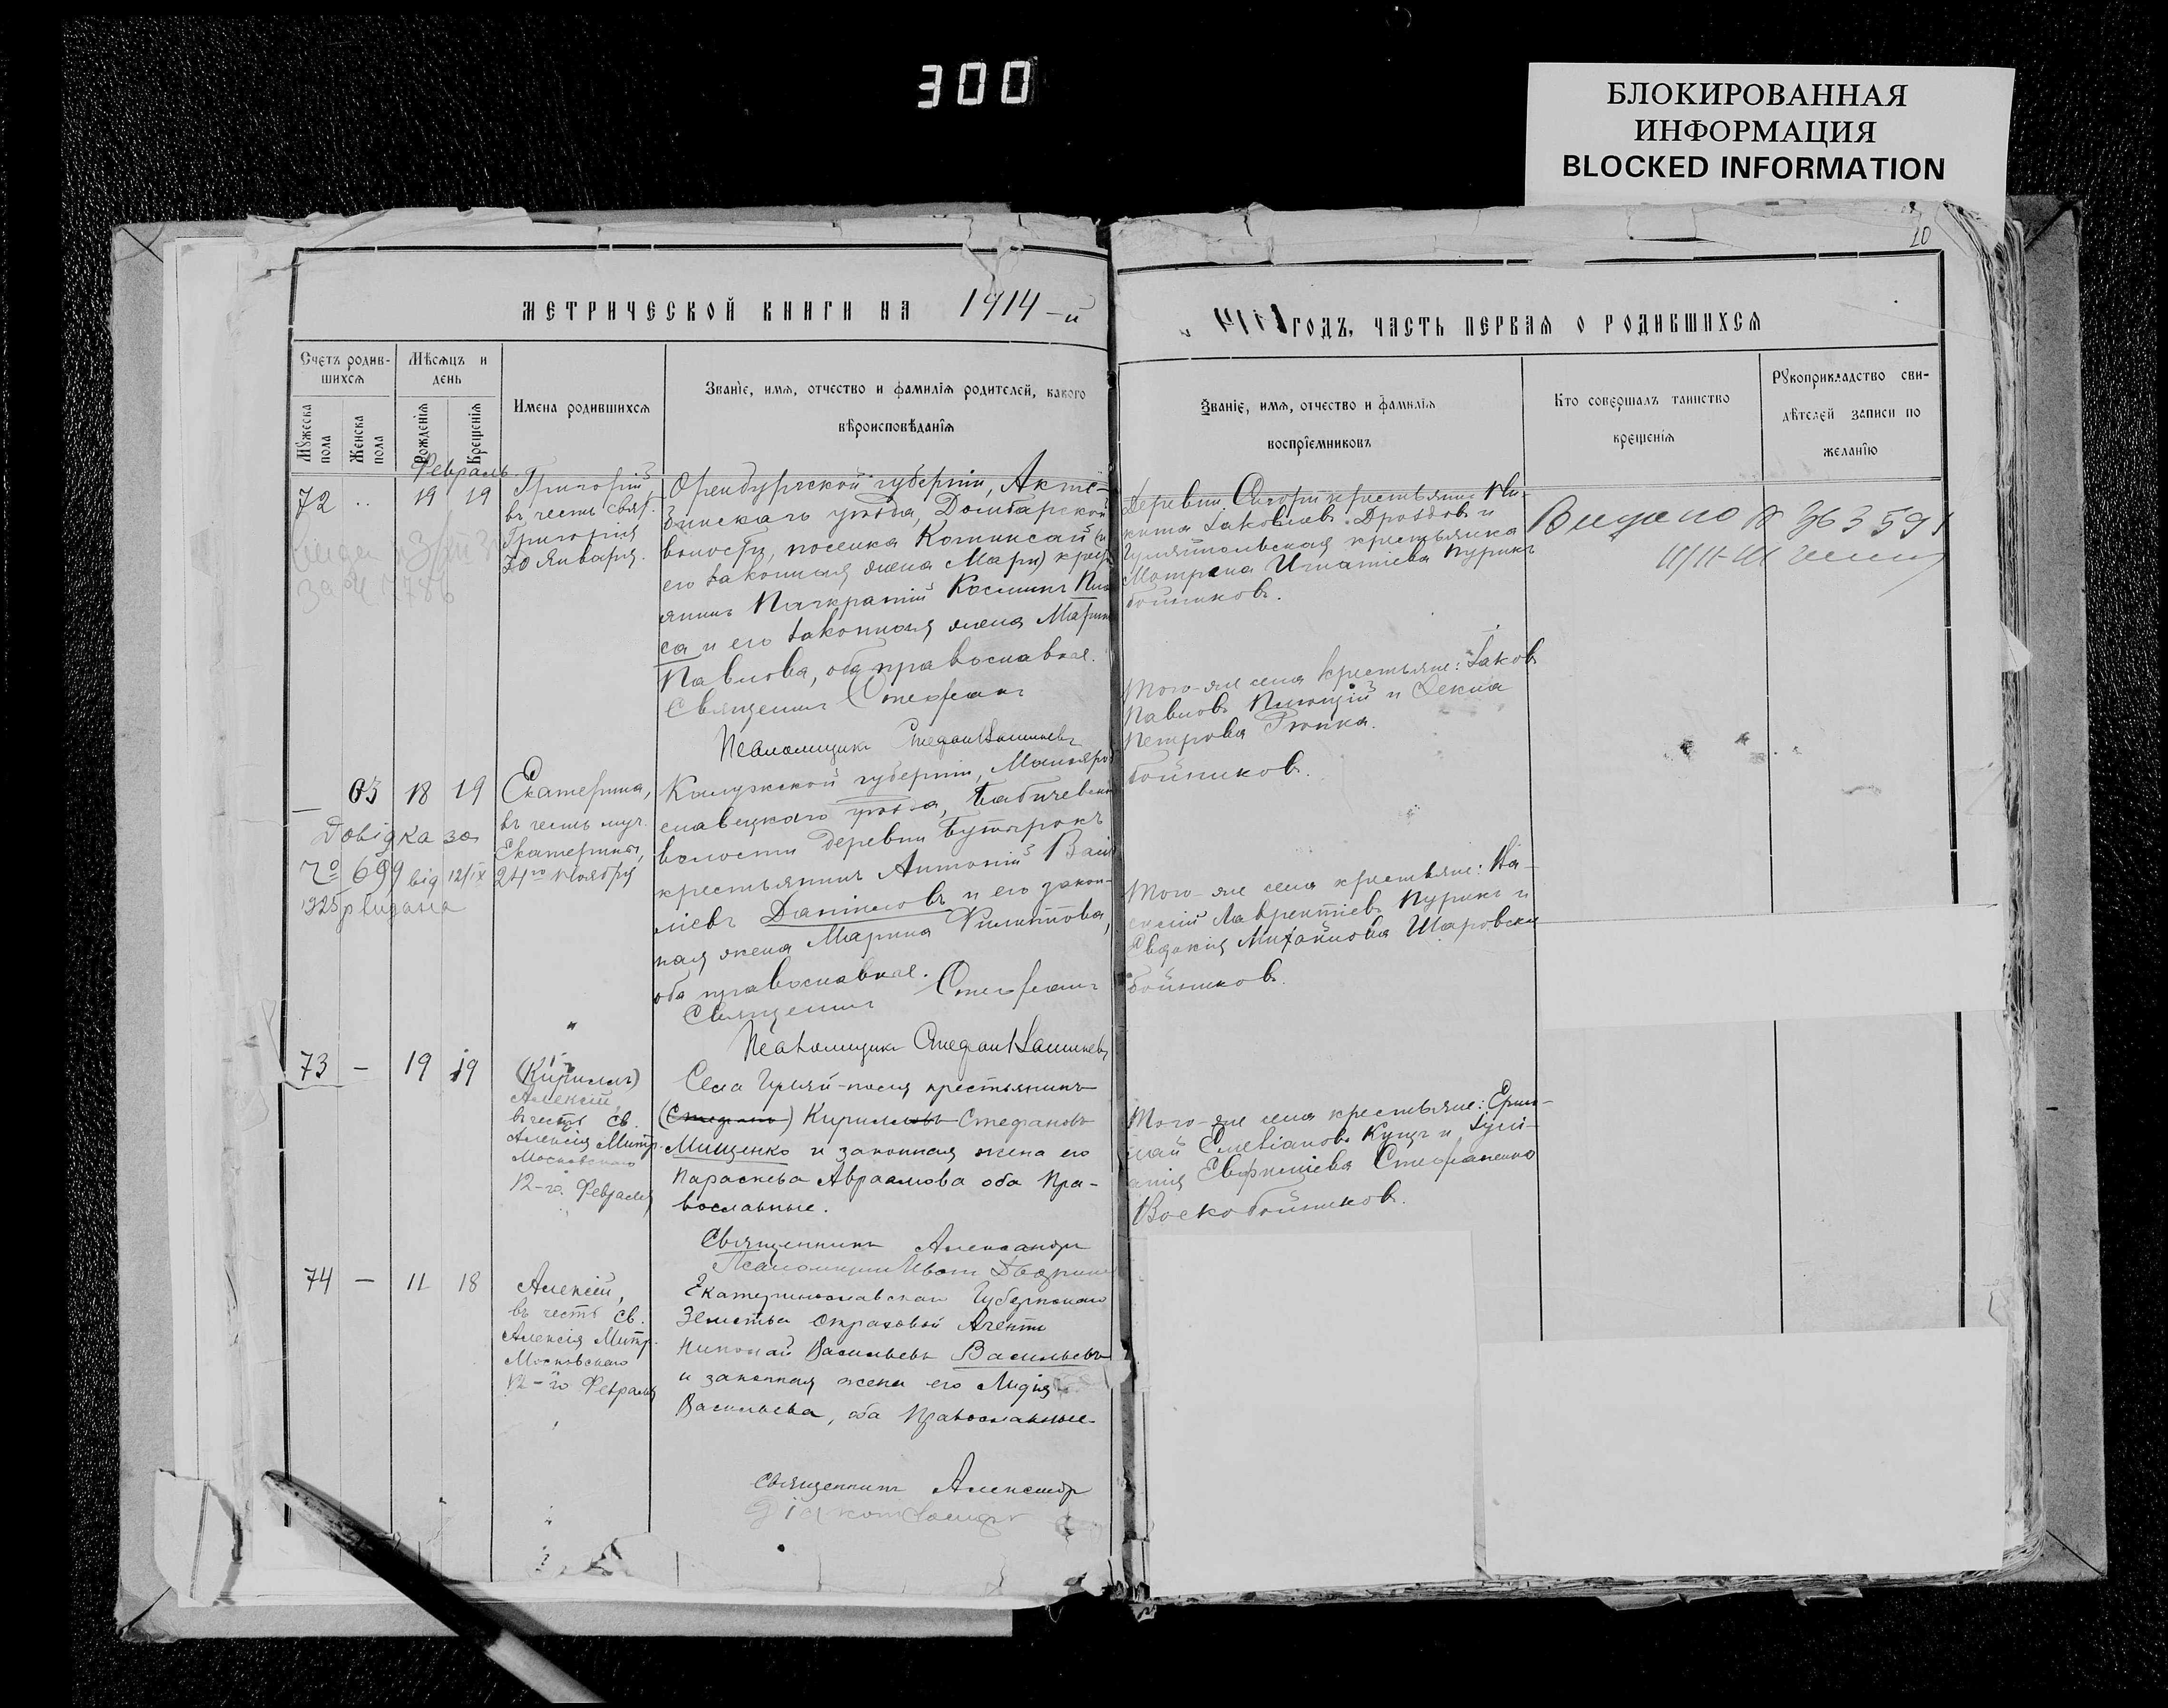 300
БЛОКИРОВАННАЯ
ИНФОРМАЦИЯ
BLOCKED INFORMATION
10
МЕТРИЧЕСКОЙ КНИГИ НА 1914-й
ГОДЪ, ЧАСТЬ ПЕРВАЯ О РОДИВШИХСЯ
Счетъ родив-
шихся
Мужеска
пола
Женска
пола
Мѣсяцъ и
день
Рожденія
Крещенія
Имена родившихся
Званіе, имя, отчество и фамилія родителей, какого
вѣроисповѣданія
Званіе, имя, отчество и фамилія
воспріемниковъ
Кто совершалъ таинство
крещенія
Рукоприкладство сви-
дѣтелей записи по
желанію
Февраль
72 19 19
Григорій
въ честь свят.
Григорія
30 Января.
Оренбургской губерніи, Актю-
бинскаго уѣзда, Домбарской
волости, поселка Коминсай
его законная жена Мари)
Панкратій Косминъ
са и его законная жена
Павлова, оба православные.
Священникъ Стефан
Псаломщикъ
Деревни крестьянин Ни-
кита Іаковлевъ Дроздовъ и
Гуляйпольская крестьянка
Мотрона Игнатіева Пурикъ
бойниковъ.
Видано № 363591
03 18 19
Екатерина,
въ честь муч.
Екатерины,
24го Ноября
Довідка за
№ 699 від 12/IX
1925р видана
Калужской губерніи, Малояро-
славецкаго уѣзда, Бабичевской
волости деревни Бутырокъ
крестьянинъ Антоній Васи
ліевъ Даниловъ и его закон-
ная жена Марина Филиппова,
оба православные.
Священникъ Стефан
Псаломщикъ
Того-же села крестьяне: Іаковъ
Павловъ и
Петрова
бойниковъ.
73 — 19 19
(Кириллъ)
Алексій,
въ честь св.
Алексія Митр.
Московскаго
12-го Февраля
Села Гуляй-поля крестьянинъ
(Стефанъ) Кирилловъ Стефановъ
Мищенко и законная жена его
Параскева Авраамова оба Пра-
вославные.
Священникъ Александръ
Псаломщикъ Иванъ
Того-же села крестьяне: Ва-
силій Лаврентіевъ Пурикъ и
Евдокія Михайлова
бойниковъ.
74 — 11 18
Алексій,
въ честь св.
Алексія Митр.
Московскаго
12-го Февраля
Екатеринославскаго Губернскаго
Земства Страховой Агентъ
Николай Васильевъ Васильевъ
и законная жена его Лидія
Васильева, оба Православные
Священникъ Александръ
Того-же села крестьяне: Ермо-
лай Емеліановъ и Іулі-
анія Евфиміева Стефаненко
Воскобойниковъ.